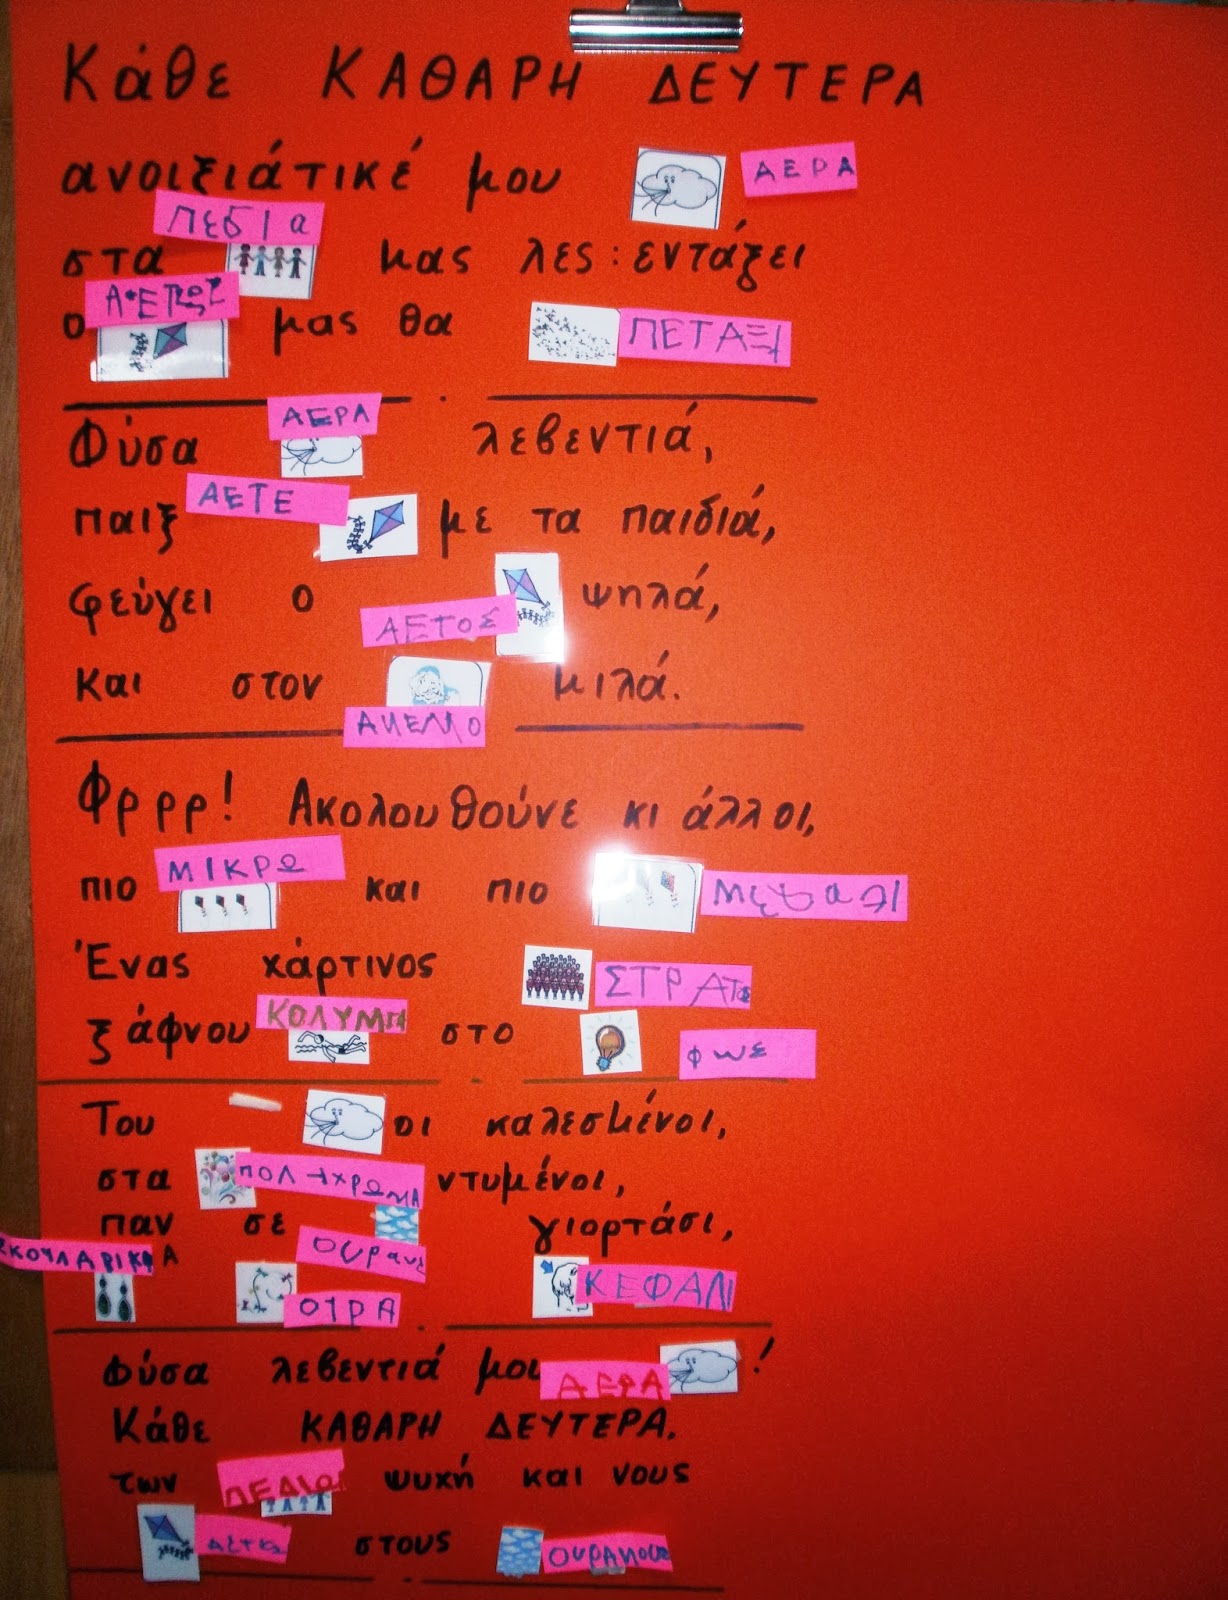 Κάθε ΚΑΘΑΡΗ ΔΕΥΤΕΡΑ
ανοιξιάτικέ μου ΑΕΡΑ
στα ΠΕδΙα μας λες: εντάξει
ο μας θα ΠΕΤΑΞΙ
Φύσα ΑΕΡΑ λεβεντιά,
παιξ ΑΕΤΕ με τα παιδιά,
φεύγει ο ΑΕΤΟΣ ψηλά,
και στον ΑΝΕΜΟ μιλά.
Φρρρ! Ακολουθούνε κι άλλοι,
πιο ΜΙΚΡΩ και πιο
Ένας χάρτινος ΣΤΡΑΤΟ
ξάφνου ΚΟΛΥΜΠΑ στο ΦΩΣ
Του οι καλεσμένοι,
στα ΠΟΛΥΧΡΩΜΑ ντυμένοι,
παν σε γιορτάσι,
ΣΚΟΥΛΑΡΙΚΙΑ ΟΥΡΑ ΚΕΦΑΝ
Φύσα λεβεντιά μου ΑΕΡΑ !
Κάθε ΚΑΘΑΡΗ ΔΕΥΤΕΡΑ.
των ΠΕΔΙΩ ψυχή και νους
στους ΟΥΡΑΝΟΥΣ